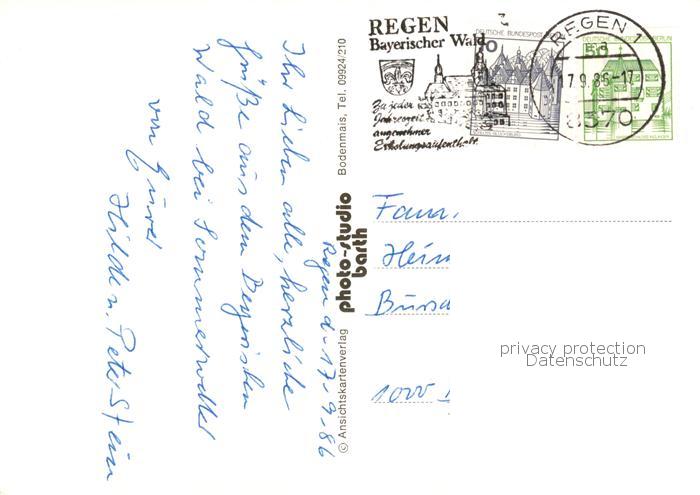 Regen d. 17.9.86
Ihr Lieben alle, herzliche
Grüße aus dem Bayrischen
Wald bei Sommerwetter
von Eurer
Hilde u. Peter Stein
© Ansichtskartenverlag
photo-studio
barth
Bodenmais, Tel. 09924/210
REGEN
Bayerischer Wald
Zu jeder
Jahreszeit
angenehmer
Erholungsaufenthalt
DEUTSCHE BUNDESPOST
REGEN 1
17.9.86-17
8370
Fam.
Hein
Bursa
1000
privacy protection
Datenschutz